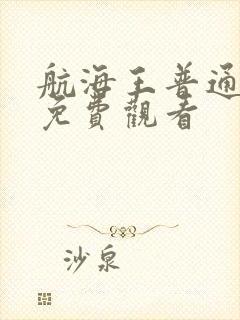 航海王普通
免費觀看
沙泉